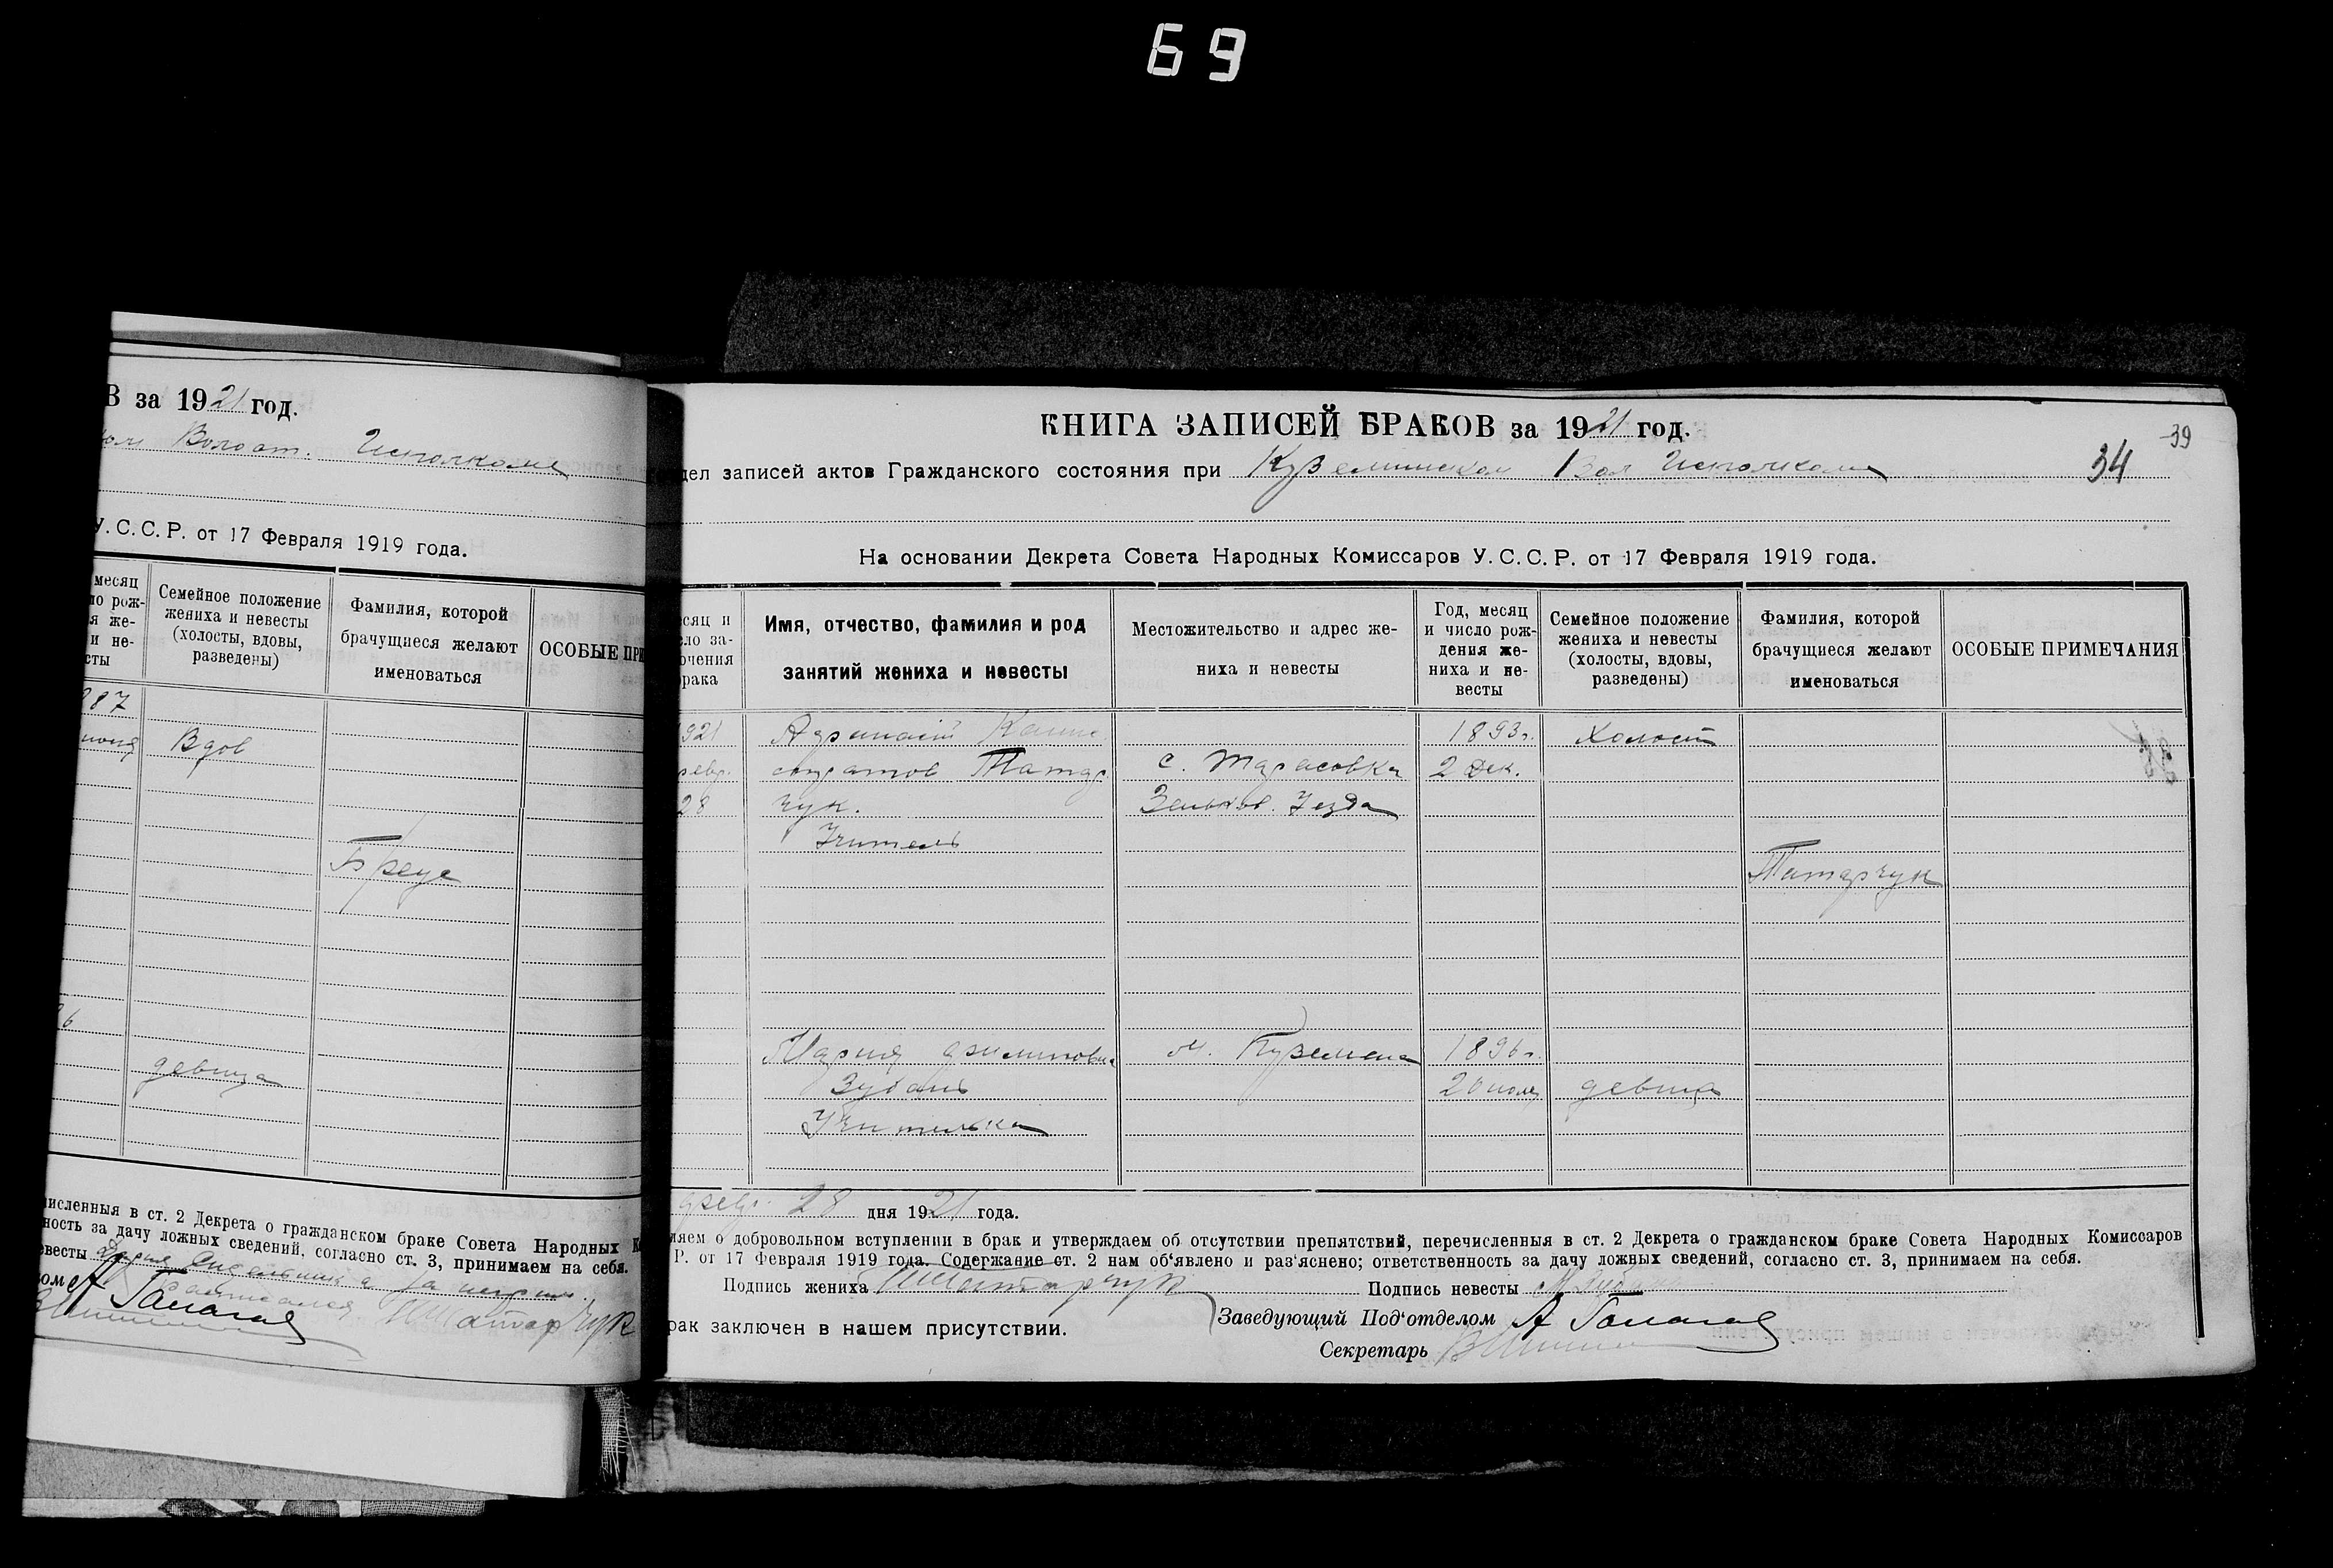 69
В за 1921 год.
Волост. Исполкоме
У.С.С.Р. от 17 Февраля 1919 года.
месяц
Семейное положение
жениха и невесты
(холосты, вдовы,
разведены)
Фамилия, которой
брачущиеся желают
именоваться
ОСОБЫЕ ПРИ
87
Вдов
девица
численныя в ст. 2 Декрета о гражданском браке Совета Народных К
ность за дачу ложных сведений, согласно ст. 3, принимаем на себя.
евесты
КНИГА ЗАПИСЕЙ БРАКОВ за 1921 год.
39
дел записей актов Гражданского состояния при Куземинском Вол Исполкоме
34
На основании Декрета Совета Народных Комиссаров У.С.С.Р. от 17 Февраля 1919 года.
есяц и
ло за-
ючения
рака
Имя, отчество, фамилия и род
занятий жениха и невесты
Местожительство и адрес же-
ниха и невесты
Год, месяц
и число рож-
дения же-
ниха и не-
весты
Семейное положение
жениха и невесты
(холосты, вдовы,
разведены)
Фамилия, которой
брачущиеся желают
именоваться
ОСОБЫЕ ПРИМЕЧАНИЯ
921 1893г. Холост
февр. Татар с. Тарасовка 2 Дек.
28 чук. Зеньков. Уезда
Учитель
Татарчук
Мария Филиповна м. Куземена 1896г.
Зубань девица
Учителька
февр. 28 дня 1921 года.
ляем о добровольном вступлении в брак и утверждаем об отсутствии препятствий, перечисленныя в ст. 2 Декрета о гражданском браке Совета Народных Комиссаров
Р. от 17 Февраля 1919 года. Содержание ст. 2 нам об‘явлено и раз‘яснено; ответственность за дачу ложных сведений, согласно ст. 3, принимаем на себя.
Подпись жениха Татарчук Подпись невесты
Заведующий Под‘отделом
рак заключен в нашем присутствии.
Секретарь